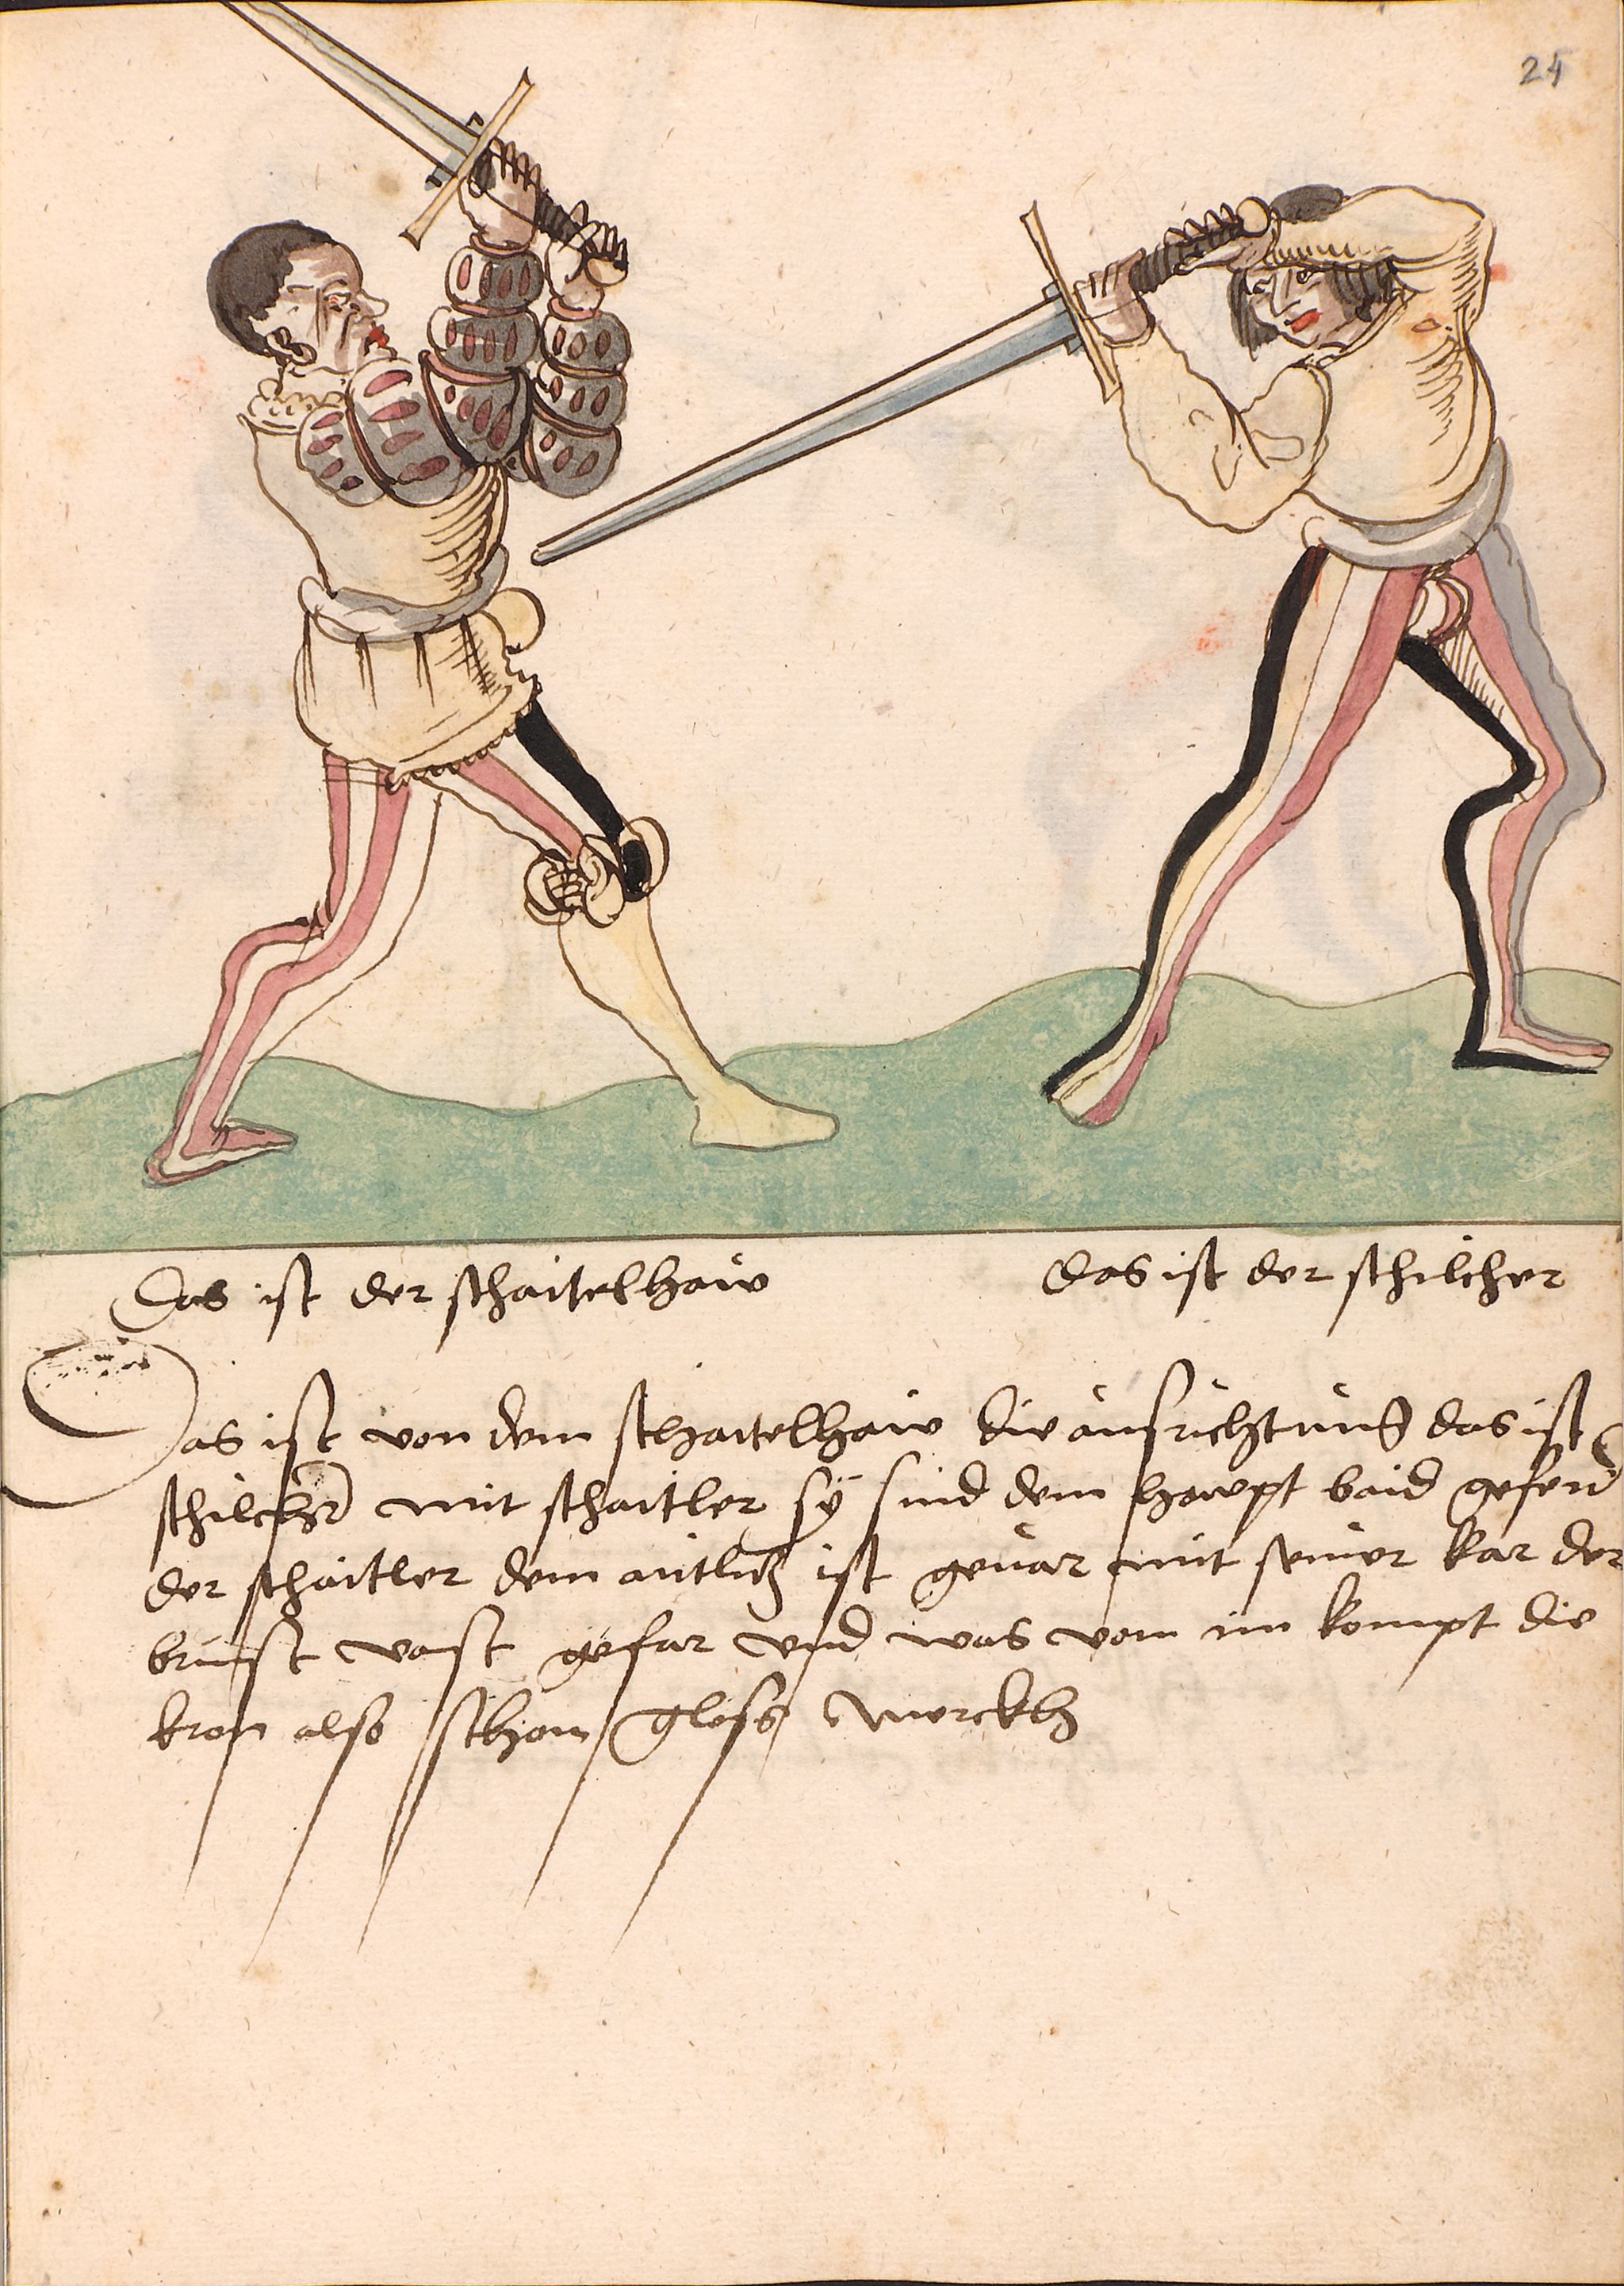 24
Das ist der schaitelhaw
das ist der schilcher
Das ist von dem schaitelhaw die ausrichtung das ist
schilcher mit schaitler sÿ sind dem hawpt baid geferd
der schaitler dem antlitz ist geuar mit seiner kar der
brust vast gefar vnd was vom im kompt die
kron also schon glosß Merckh